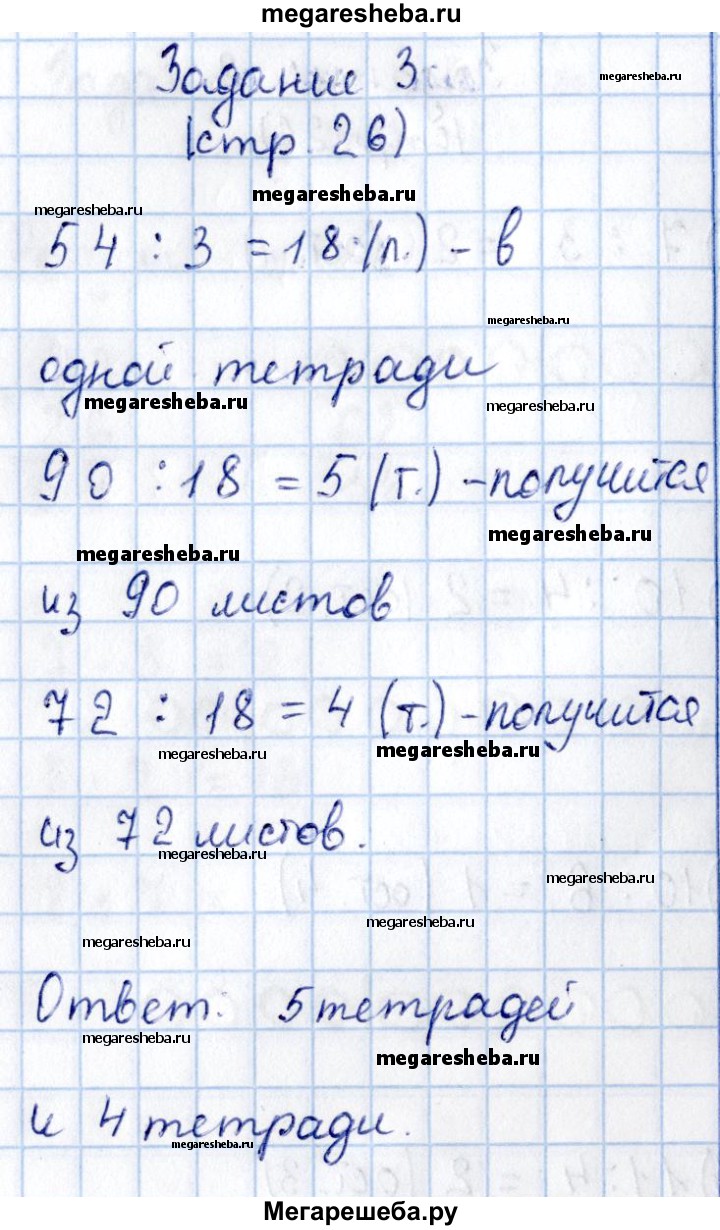 megaresheba.ru
Задание 3
megaresheba.ru
(стр. 26)
megaresheba.ru
megaresheba.ru
54 : 3 = 18 (л.) - в
megaresheba.ru
одной тетради
megaresheba.ru
megaresheba.ru
90 : 18 = 5 (т.) - получится
megaresheba.ru
megaresheba.ru
из 90 листов
72 : 18 = 4 (т.) - получится
megaresheba.ru
megaresheba.ru
из 72 листов.
megaresheba.ru
megaresheba.ru
megaresheba.ru
megaresheba.ru
Ответ: 5 тетрадей
megaresheba.ru
megaresheba.ru
и 4 тетради.
megaresheba.ru
Мегарешеба.ру